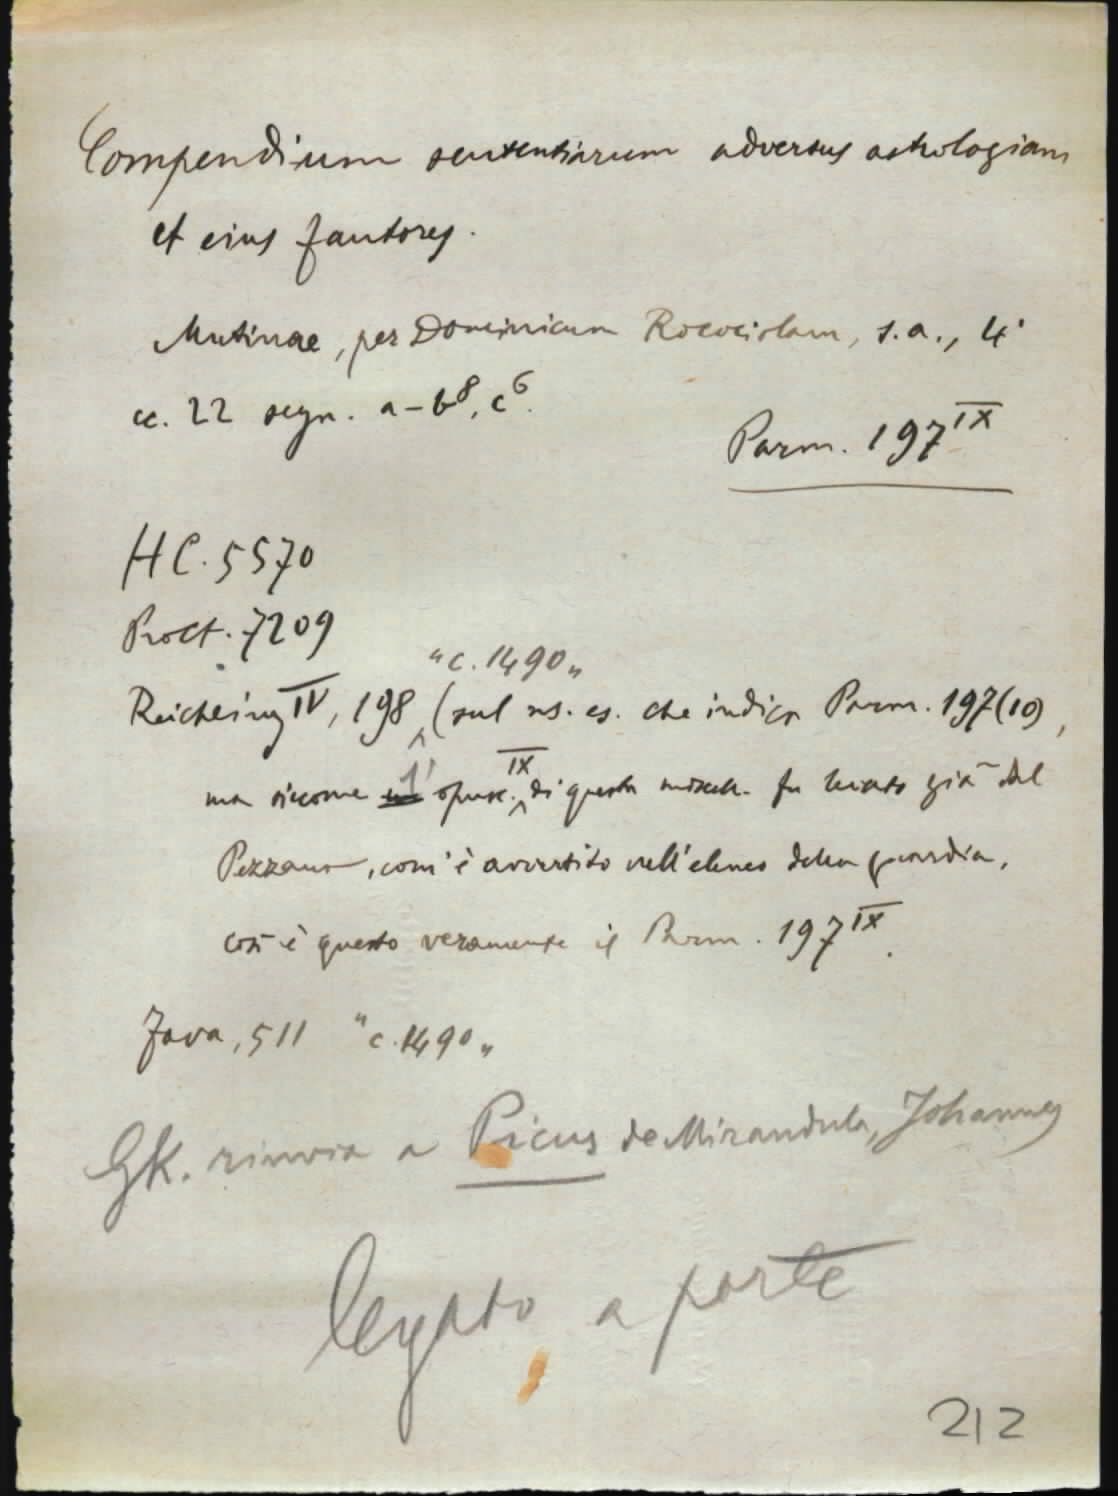 Compendium sententiarum adversus astrologiam
et eius fautores.
Mutinae, per Dominicum Rocociolam, s.a., 4°
cc. 22 segn. a-b⁸, c⁶.
Parm. 197^IX
HC. 5570
Proct. 7209
"c. 1490"
Reichling IV, 198 (sul ns. es. che indica Parm. 197(10),
ma siccome l' opusc. IX di questa miscell. fu levato già dal
Pezzana, com'è avvertito nell'elenco della guardia,
così è questo veramente il Parm. 197^IX.
Fava, 511 "c. 1490"
GK. rinvia a Picus de Mirandula, Johannes
legato a parte
212